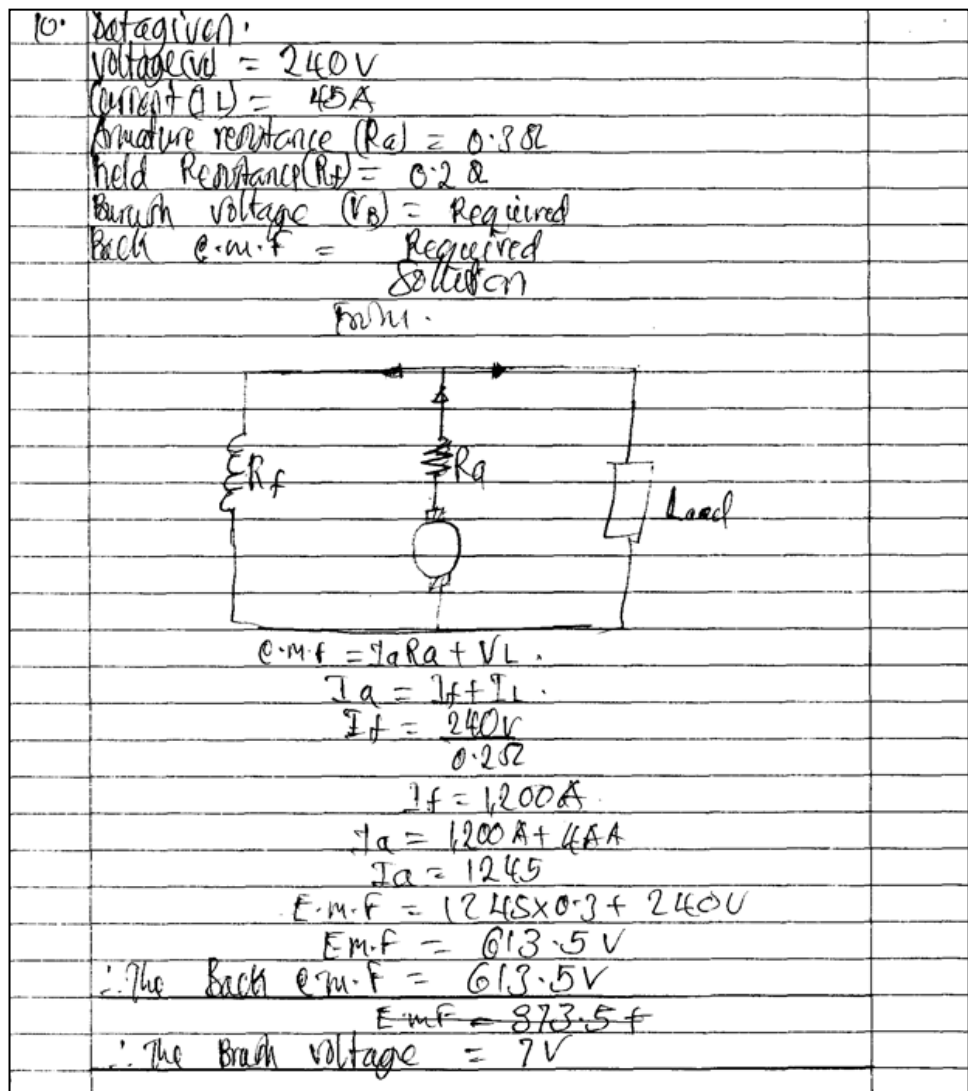 10. Data given.
Voltage (VL) = 240V
Current (IL) = 45A
Armature resistance (Ra) = 0.3Ω
Field Resistance (Rf) = 0.2Ω
Brush voltage (VB) = Required
Back e.m.f = Required
Solution
From.
Rf
Ra
Load
e.m.f = IaRa + VL.
Ia = If + IL.
If = 240V
0.2Ω
If = 1,200A
Ia = 1200A + 45A
Ia = 1245
E.m.F = 1245x0.3 + 240V
Em.F = 613.5 V
∴ The Back e.m.F = 613.5V
EmF = 873.5
∴ The Brush voltage = 7V